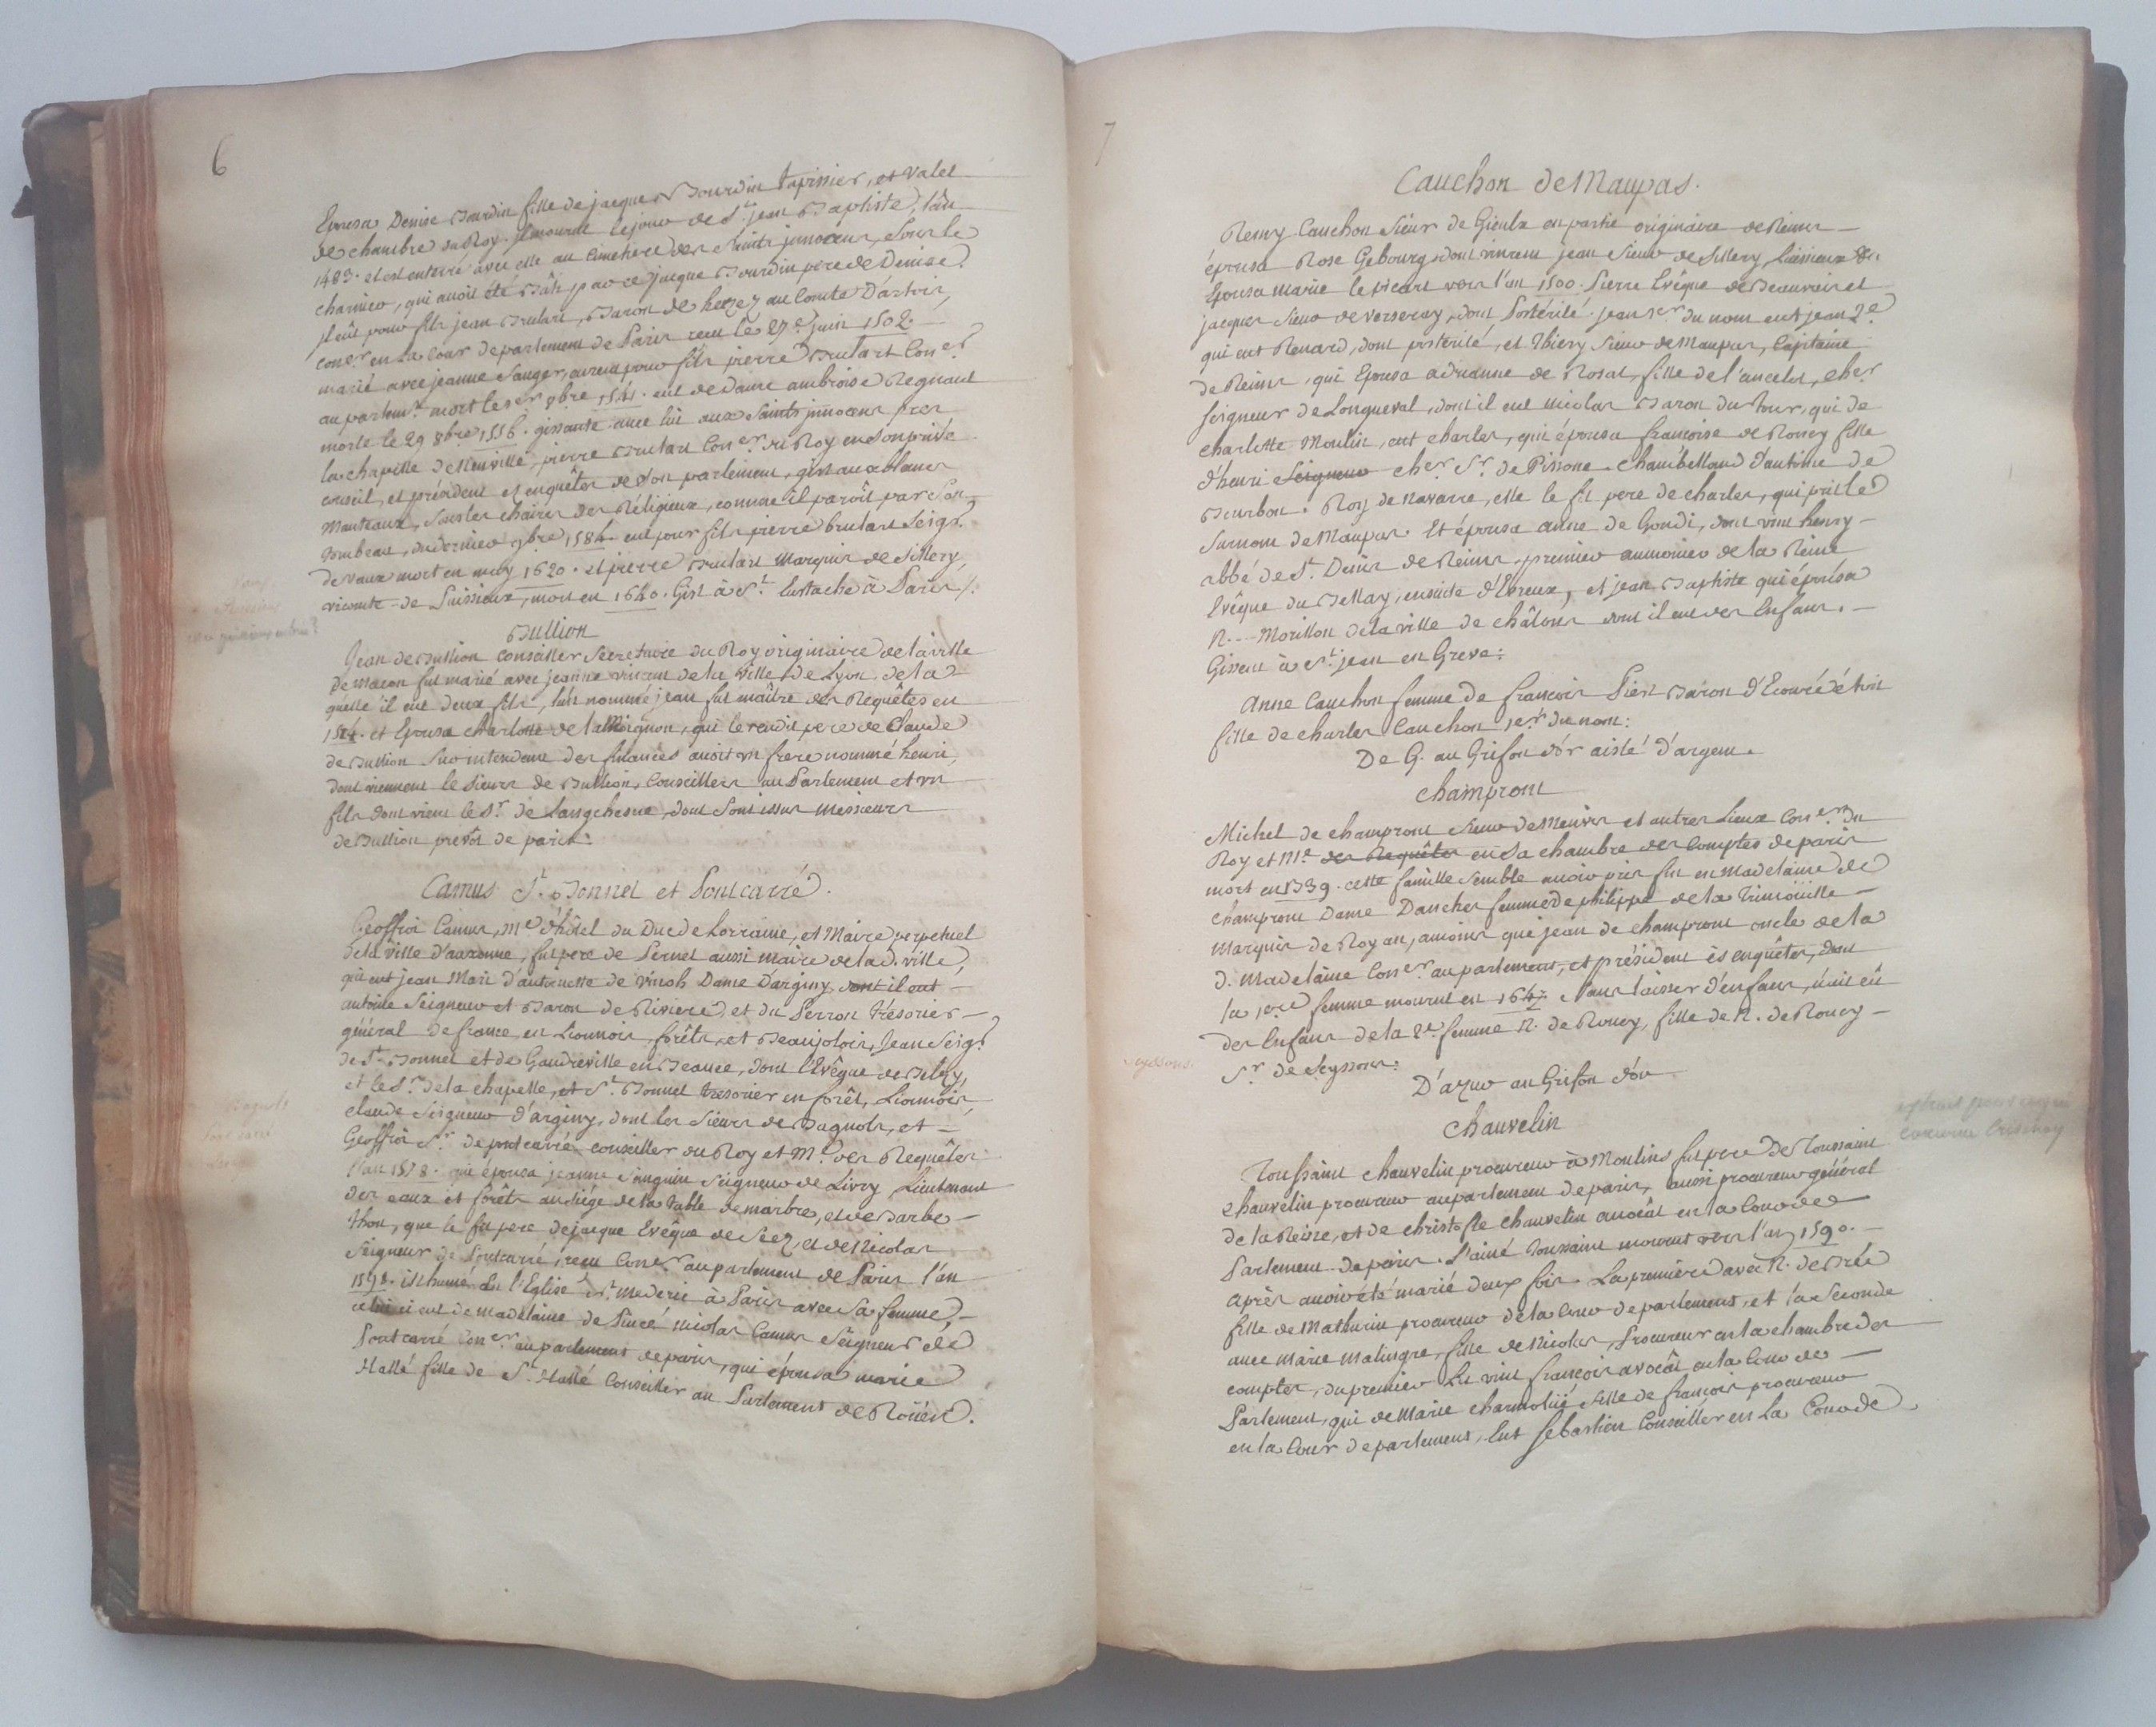 6
Epousa Denise Bourdin fille de jacques Bourdin tapissier, et valet
de chambre du Roy. Il mourut le jour de St. jean Baptiste, l'an
1483. et est enterré avec elle au Cimetiere des Saints innocens, sous le
charnier, qui avoit été Bâti par ce jacque Bourdin pere de Denise.
Il eût pour fils jean Brulart, Baron de hez au Comté D'artois,
coner. en la Cour de parlement de Paris receu le 27e juin 1502.
marié avec jeanne Sanger, aureut pour fils pierre Brulart Coner.
au parlemt. mort le 1er 9bre 1541. eut de Dame ambroise Regnault
morte le 29 8bre 1556. gissante avec lui aux Saints innocens pres
la chapelle de Neuville, pierre Brulart Coner. du Roy en son privé
conseil, et président es enquêtes de son parlement, gist aux blancs
Manteaux, sous les chaires des Réligieux, comme il paroît par son
tombeau, du dernier 9bre 1584. eut pour fils pierre brulart Seigr.
de Vaux mort en may 1620. et pierre Brulart Marquis de Sillery,
vicomte de Puissieux, mort en 1640. Gist à St. Eustache à Paris /.
Bullion
Jean de Bullion Conseiller Secretaire du Roy originaire de la ville
de Macon fut marié avec jeanne vincent de la ville de Lyon de la
quelle il eut deux fils, l'un nommé jean fut maître des Requêtes en
et Epousa charlotte de lamoignon, qui le rendit pere de Claude
de Bullion Surintendant des finances avoit un frere nommé henri,
dont viennent le Sieurs de Bullion, Conseillers au Parlement et un
fils dont vient le Sr. de Longchesne, dont sont issus Messieurs
de Bullion prevot de paris.
Camus St. Bonnet et Pontcarré.
Geoffroi Camus, Me d'hôtel du Duc de Lorraine, et Maire perpetuel
de la ville d'auxonne, fut pere de Pernet aussi maire de lad. ville,
qui eut jean Mari d'antoinette de vinols Dame D'arginy, dont il eut
antoine Seigneur et Baron de Riviere, et du Perron Trésorier
général de france, en Lionnois, forêts, et Beaujolois, Jean Seigr.
de St. Bonnet et de Gaudreville en Beauce, dont l'Evêque de Bellay,
et le Sr. de la chapelle, et St. Bonnet tresorier en forêt, Lionnois,
claude Seigneur d'arginy, dont les Sieurs de Bagnols, et
Geoffroi Sr. de pontcarré conseiller du Roy et Me. des Requêtes
l'an 1578. qui épousa jeanne Sanguin Seigneur de Livry Lieutenant
des eaux et forêts au siége de la table de marbre, et de Barbe
thou, que le fit pere de jacque Evêque de Séez, et de Nicolas
Seigneur de Pontcarré, receu Coner. au parlement de Paris l'an
inhumé en l'Eglise St. Mederic à Paris avec sa femme,
celui ci eut de madelaine de Pincé Nicolas Camus Seigneur de
Pontcarré Coner. au parlement de paris, qui épousa marie
Hallé fille de Sr. Hallé Conseiller au Parlement de Roüen.
7
Cauchon de Maupas.
Remy Cauchon Sieur de Gieulx en partie originaire de Reims
épousa Rose Gebourg, dont vinrent jean Sieur de Sillery, Puissieux &c
Epousa marie le picart vers l'an 1500. Pierre Evêque de Beauvais et
jacques Sieur de verseray, dont Postérité. jean 1er du nom eut jean 2e
qui eut Renard, dont postérité, et Thiery Sieur de Maupas, Capitaine
de Reims, qui Epousa adrianne de Rosat, fille de l'ancelot, cher
Seigneur de Longueval, dont il eut nicolas Baron du tour, qui de
charlotte Moulin, eut charles, qui épousa francoise de Roucy fille
d'henri Seigneur cher Sr. de Pissone chambelland d'antoine de
Bourbon. Roy de Navarre, elle le fit pere de charles, qui prit le
Surnom de Maupas. Et épousa anne de Gondi, dont vint henry
abbé de St. Denis de Reims, premier aumonier de la Reine
Evêque du Bellay, ensuite d'Evreux, et jean Baptiste qui épousa
N.... Morillon de la ville de châlons dont il eut des Enfans.
Gissent à St. jean en Greve:
Anne Cauchon femme de francois Baron d'Ecouré
fille de charles Cauchon 1er du nom:
De G. au Grifon d'or aislé d'argent.
Champront
Michel de champront Sieur de Meuves et autres Lieux Coner. du
Roy et Me. des Requêtes en sa chambre des Comptes de paris
mort en 1539. cette famille Semble avoir pris fin en Madelaine de
Champront Dame Danches femme de philippe de la trimoüille
Marquis de Royan, amoins que jean de champront oncle de la
d. Madelaine Coner. au parlement, et président ès enquêtes, dont
la 1ere femme mourut en Sans laisser d'enfans, n'ait eû
des Enfans de la 2e femme N. de Roucy, fille de N. de Roucy
Sr. de Seyssons.
Seyssons.
D'azur au Grifon d'or
Chauvelin
Toussaint chauvelin procureur à Moulins fut pere de Toussaint
chauvelin procureur au parlement de paris, aussi procureur général
de la Reine, et de christofle chauvelin avocât en la Cour de
Parlement de paris. L'ainé Toussaint mourut vers l'an 1590.
après avoir été marié deux fois. La premiere avec N. de Brée
fille de Mathurin procureur de la Cour de parlement, et la Seconde
avec Marie Malingre, fille de Nicolas, Procureur en la chambre des
comptes, du premier Lit vint françois avocât en la Cour de
Parlement, qui de Marie charmolüé fille de francois procureur
en la Cour de parlement, Eut Sebastien Conseiller en La Cour de